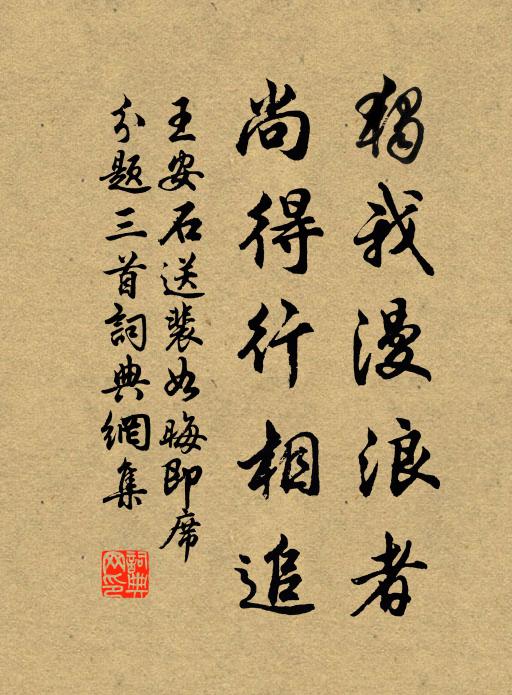 獨我漫浪者
尚得行相追
王安石送裴如晦即席
分题三首詞典網集
詞典網印